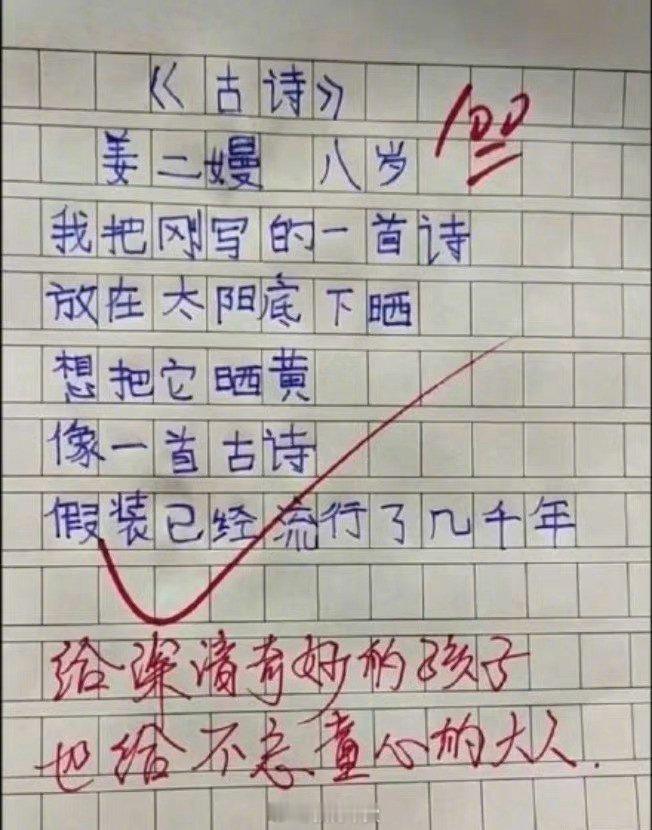 《古诗》
100
姜二嫚 八岁
我把刚写的一首诗
放在太阳底下晒
想把它晒黄
像一首古诗
假装已经流行了几千年
给深清奇好的孩子
也给不忘童心的大人.